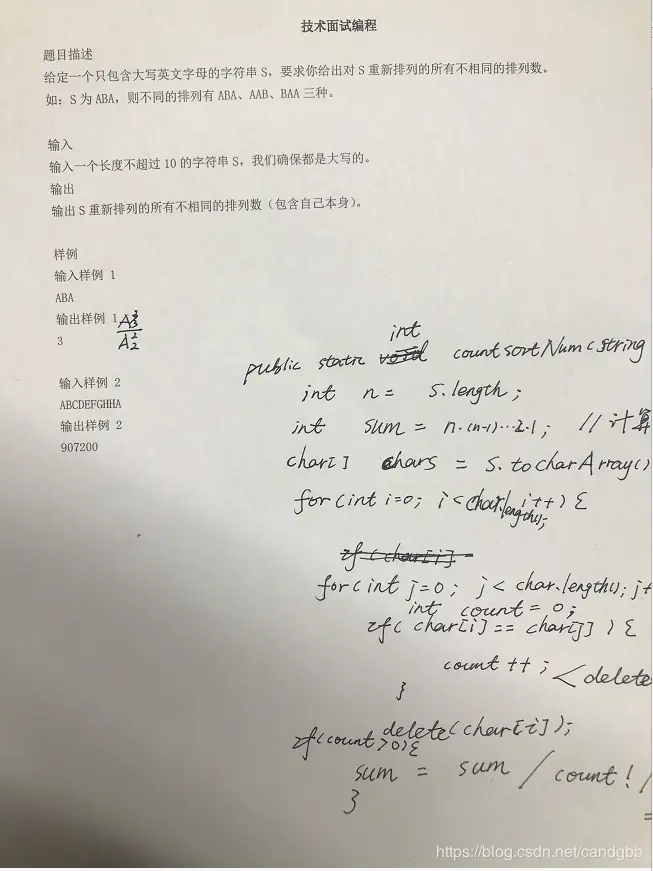 技术面试编程
题目描述
给定一个只包含大写英文字母的字符串 S，要求你给出对 S 重新排列的所有不相同的排列数。
如：S 为 ABA，则不同的排列有 ABA、AAB、BAA 三种。
输入
输入一个长度不超过 10 的字符串 S，我们确保都是大写的。
输出
输出 S 重新排列的所有不相同的排列数（包含自己本身）。
样例
输入样例 1
ABA
输出样例 1
3
A³₃
A²₂
输入样例 2
ABCDEFGHHA
输出样例 2
907200
int
public static void countsortNum(string
int n = S.length;
int sum = n·(n-1)···2·1; // 计算
char[] chars = S.toCharArray()
for(int i=0; i<char.length(); i++) {
if(char[i]
for(int j=0; j<char.length(); j+
int count = 0;
if(char[i]==char[j]) {
count++; <delete
}
delete(char[i]);
if(count>0){
sum = sum / count! /
}
=
https://blog.csdn.net/candgbb